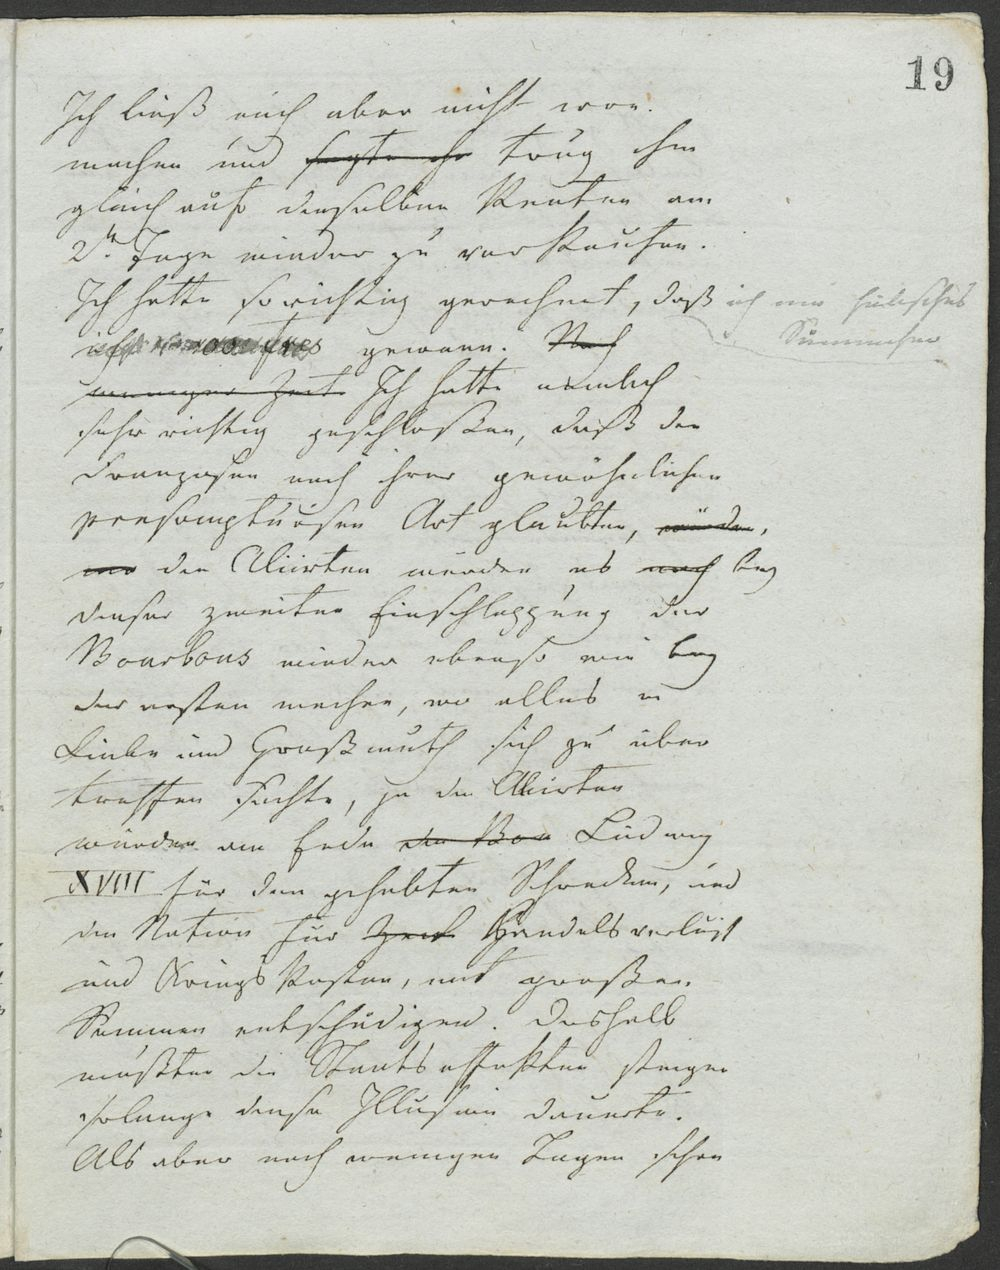 19
Ich ließ mich aber nicht irre
machen und sagte ihm trug ihm
gleich auf dieselben Renten am
2n Tage wieder zu verkaufen.
Ich hatte so richtig gerechnet, daß ich ein hübsches
Sümmchen
ich gewann. Nach
weniger Zeit Ich hatte nämlich
sehr richtig geschloßen, daß die
Franzosen nach ihrer gewöhnlichen
presomptuösen Art glaubten, würden,
die Aliirten würden es noch bey
dieser zweiten Einschleppung der
Bourbons wieder ebenso wie bey
der ersten machen, wo alles in
Liebe und Großmuth sich zu über
treffen suchte, ja die Aliirten
würden am Ende den Bou Ludwig
XVIII für den gehabten Schrecken, und
die Nation für Handelsverlust
und Kriegskosten, mit großen
Summen entschädigen. Deshalb
mußten die Staatseffekten steigen
solange diese Illusion dauerte.
Als aber nach wenigen Tagen schon